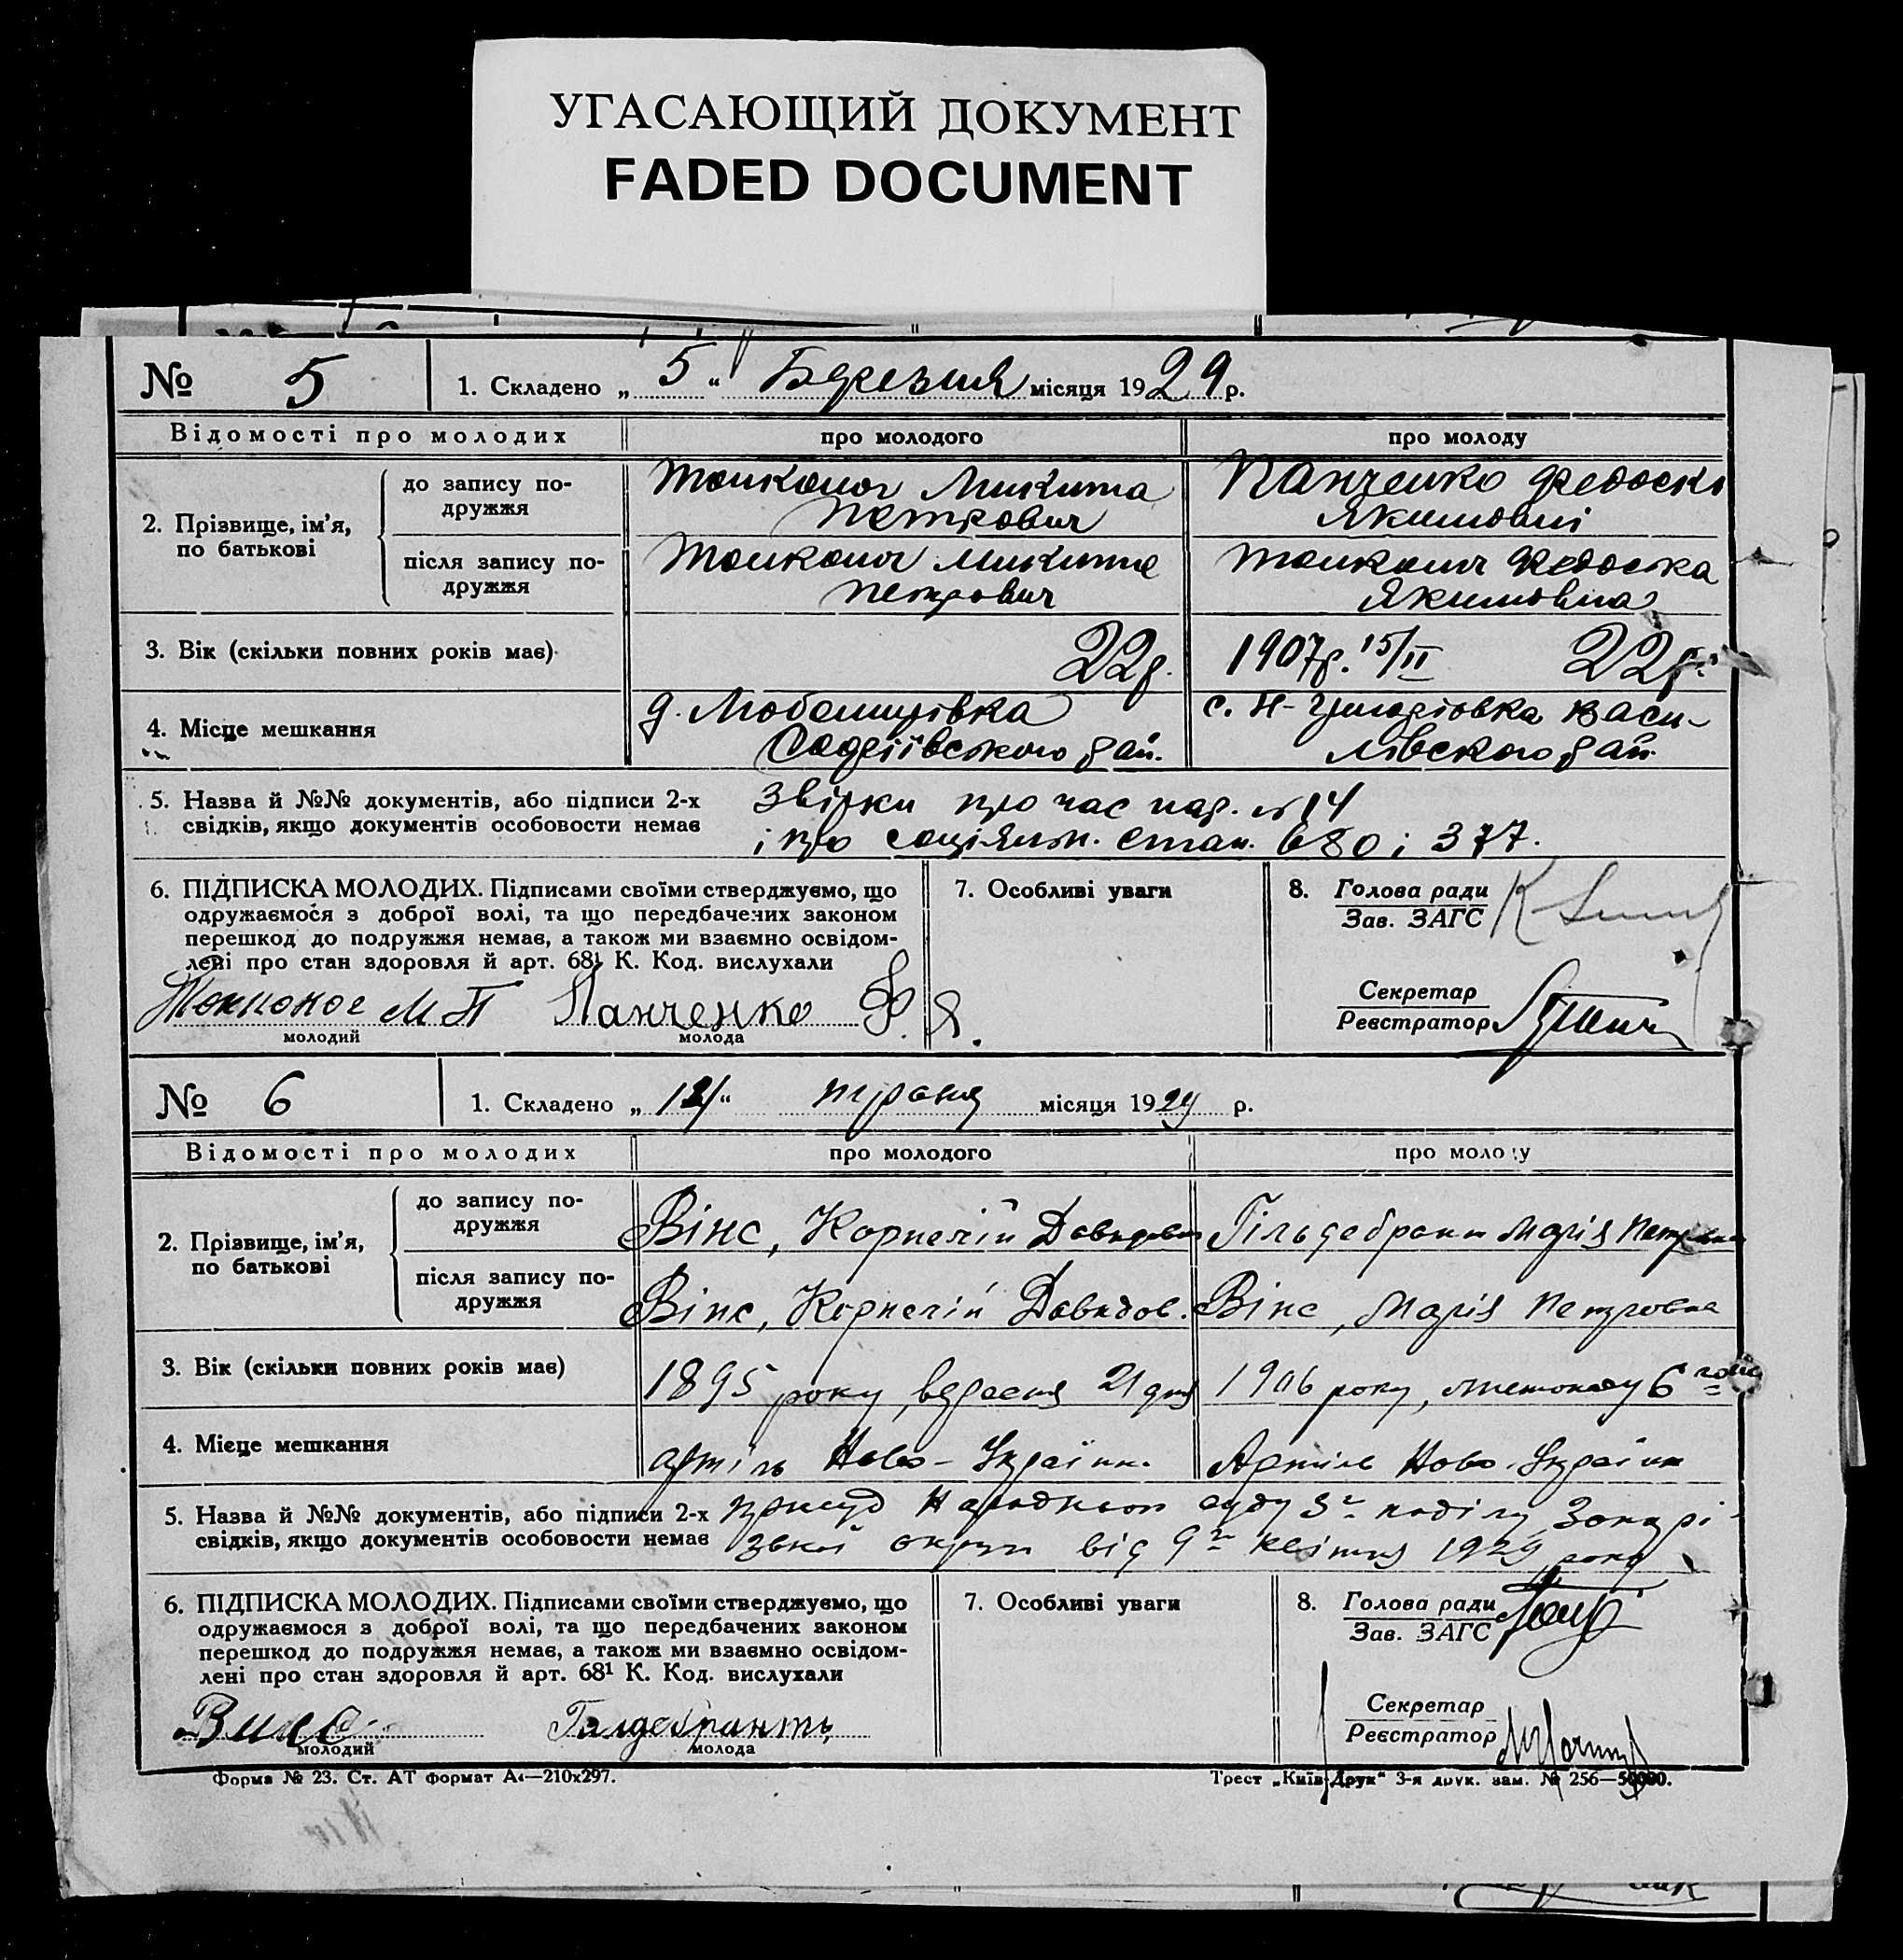 УГАСАЮЩИЙ ДОКУМЕНТ
FADED DOCUMENT
№ 5
1. Складено „ 5 “ Березня місяця 1929 р.
Відомості про молодих
про молодого
про молоду
2. Прізвище, ім’я, по батькові
до запису подружжя
Микита
Петрович
Панченко Федоска
Якимовна
після запису подружжя
Микита
Петрович
Федоська
Якимовна
3. Вік (скільки повних років має)
22 р.
1907 р. 15/II 22 р.
4. Місце мешкання
д. Любомирівка
Софіївського рай.
с. Н- Григорівка Васи-
лівского рай.
5. Назва й №№ документів, або підписи 2-х
свідків, якщо документів особовости немає
про час нар. № 14
і про соціяльн. стан. 680 і 377.
6. ПІДПИСКА МОЛОДИХ. Підписами своїми стверджуємо, що
одружаємося з доброї волі, та що передбачених законом
перешкод до подружжя немає, а також ми взаємно освідом-
лені про стан здоровля й арт. 68¹ К. Код. вислухали
М П
молодий
Панченко Ф. Я.
молода
7. Особливі уваги
8. Голова ради
Зав. ЗАГС
Секретар
Реєстратор
№ 6
1. Складено „ “ травня місяця 1929 р.
Відомості про молодих
про молодого
про молоду
2. Прізвище, ім’я, по батькові
до запису подружжя
Вінс, Корнелій Давидович
Гільдебрант Марія Петровна
після запису подружжя
Вінс, Корнелій Давидов.
Вінс, Марія Петровна
3. Вік (скільки повних років має)
1895 року, вересня 21 дня
1906 року, листопаду 6 го
4. Місце мешкання
артіль Ново-Україн.
Артіль Ново-Україн
5. Назва й №№ документів, або підписи 2-х
свідків, якщо документів особовости немає
присуд Народнього суду 3 г. поділу Запорі-
зької округи від 9 г. квітня 1929 року
6. ПІДПИСКА МОЛОДИХ. Підписами своїми стверджуємо, що
одружаємося з доброї волі, та що передбачених законом
перешкод до подружжя немає, а також ми взаємно освідом-
лені про стан здоровля й арт. 68¹ К. Код. вислухали
Винс
молодий
Гилдебрантъ
молода
7. Особливі уваги
8. Голова ради
Зав. ЗАГС
Секретар
Реєстратор
Форма № 23. Ст. АТ формат А₄—210х297.
Трест „Київ-Друк“ 3-я друк. зам. № 256—50000.